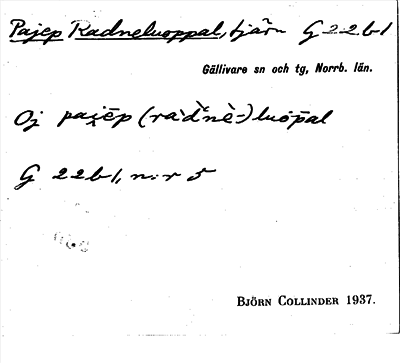 Pajep Radneluoppal, tjärn G 22b1
Gällivare sn och tg, Norrb. län.
Oj pajēp (ràd̀nè-)luōpal
G 22b1, n:r 5
BJÖRN COLLINDER 1937.